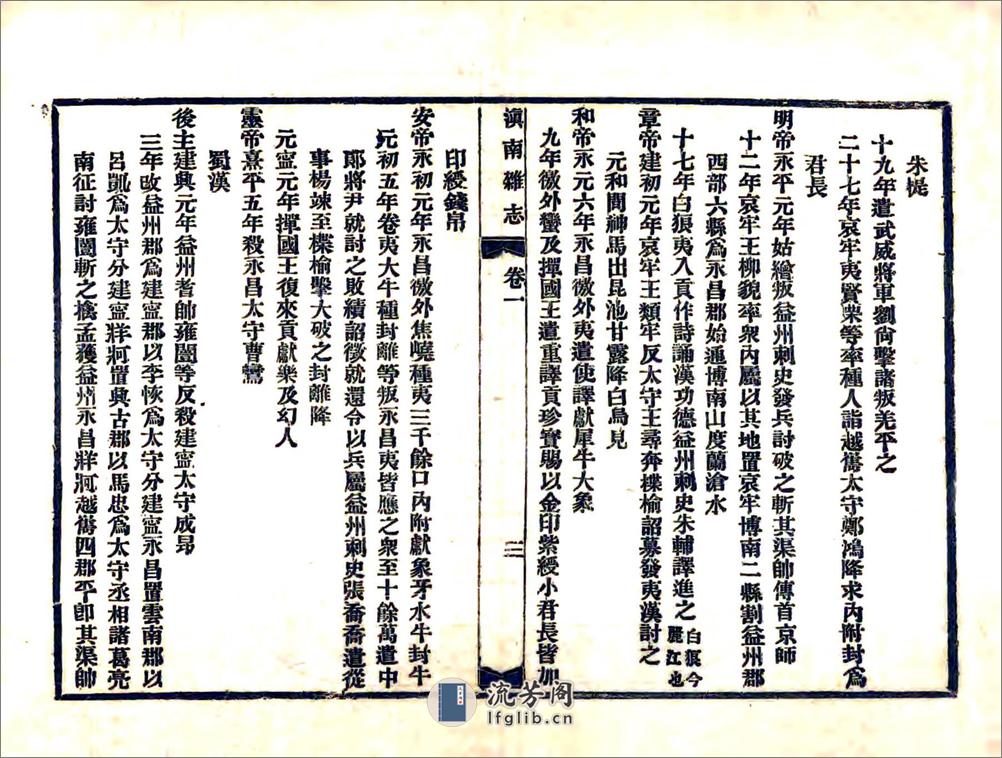 朱提
十九年遣武威將軍劉尙擊諸叛羌平之
二十七年哀牢夷賢栗等率種人詣越嶲太守鄭鴻降求內附封爲
君長
明帝永平元年姑繒叛益州刺史發兵討破之斬其渠帥傳首京師
十二年哀牢王柳貌率衆內屬以其地置哀牢博南二縣割益州郡
西部六縣爲永昌郡始通博南山度蘭滄水
十七年白狼夷入貢作詩誦漢功德益州刺史朱輔譯進之白狼今麗江也
章帝建初元年哀牢王類牢反太守王尋奔楪榆詔募發夷漢討之
元和間神馬出昆池甘露降白烏見
和帝永元六年永昌徼外夷遣使譯獻犀牛大象
九年徼外蠻及撣國王遣重譯貢珍寶賜以金印紫綬小君長皆加
滇南雜志
卷一
三
印綬錢帛
安帝永初元年永昌徼外焦僥種夷三千餘口內附獻象牙水牛封牛
元初五年卷夷大牛種封離等叛永昌夷皆應之衆至十餘萬遣中
郎將尹就討之敗績詔徵就還令以兵屬益州刺史張喬喬遣從
事楊竦至楪榆擊大破之封離降
元寧元年撣國王復來貢獻樂及幻人
靈帝熹平五年殺永昌太守曹鸞
蜀漢
後主建興元年益州耆帥雍闓等反殺建寧太守成昂
三年改益州郡爲建寧郡以李恢爲太守分建寧永昌置雲南郡以
呂凱爲太守分建寧牂牁置興古郡以馬忠爲太守丞相諸葛亮
南征討雍闓斬之擒孟獲益州永昌牂牁越嶲四郡平卽其渠帥
流芳阁
lfglib.cn